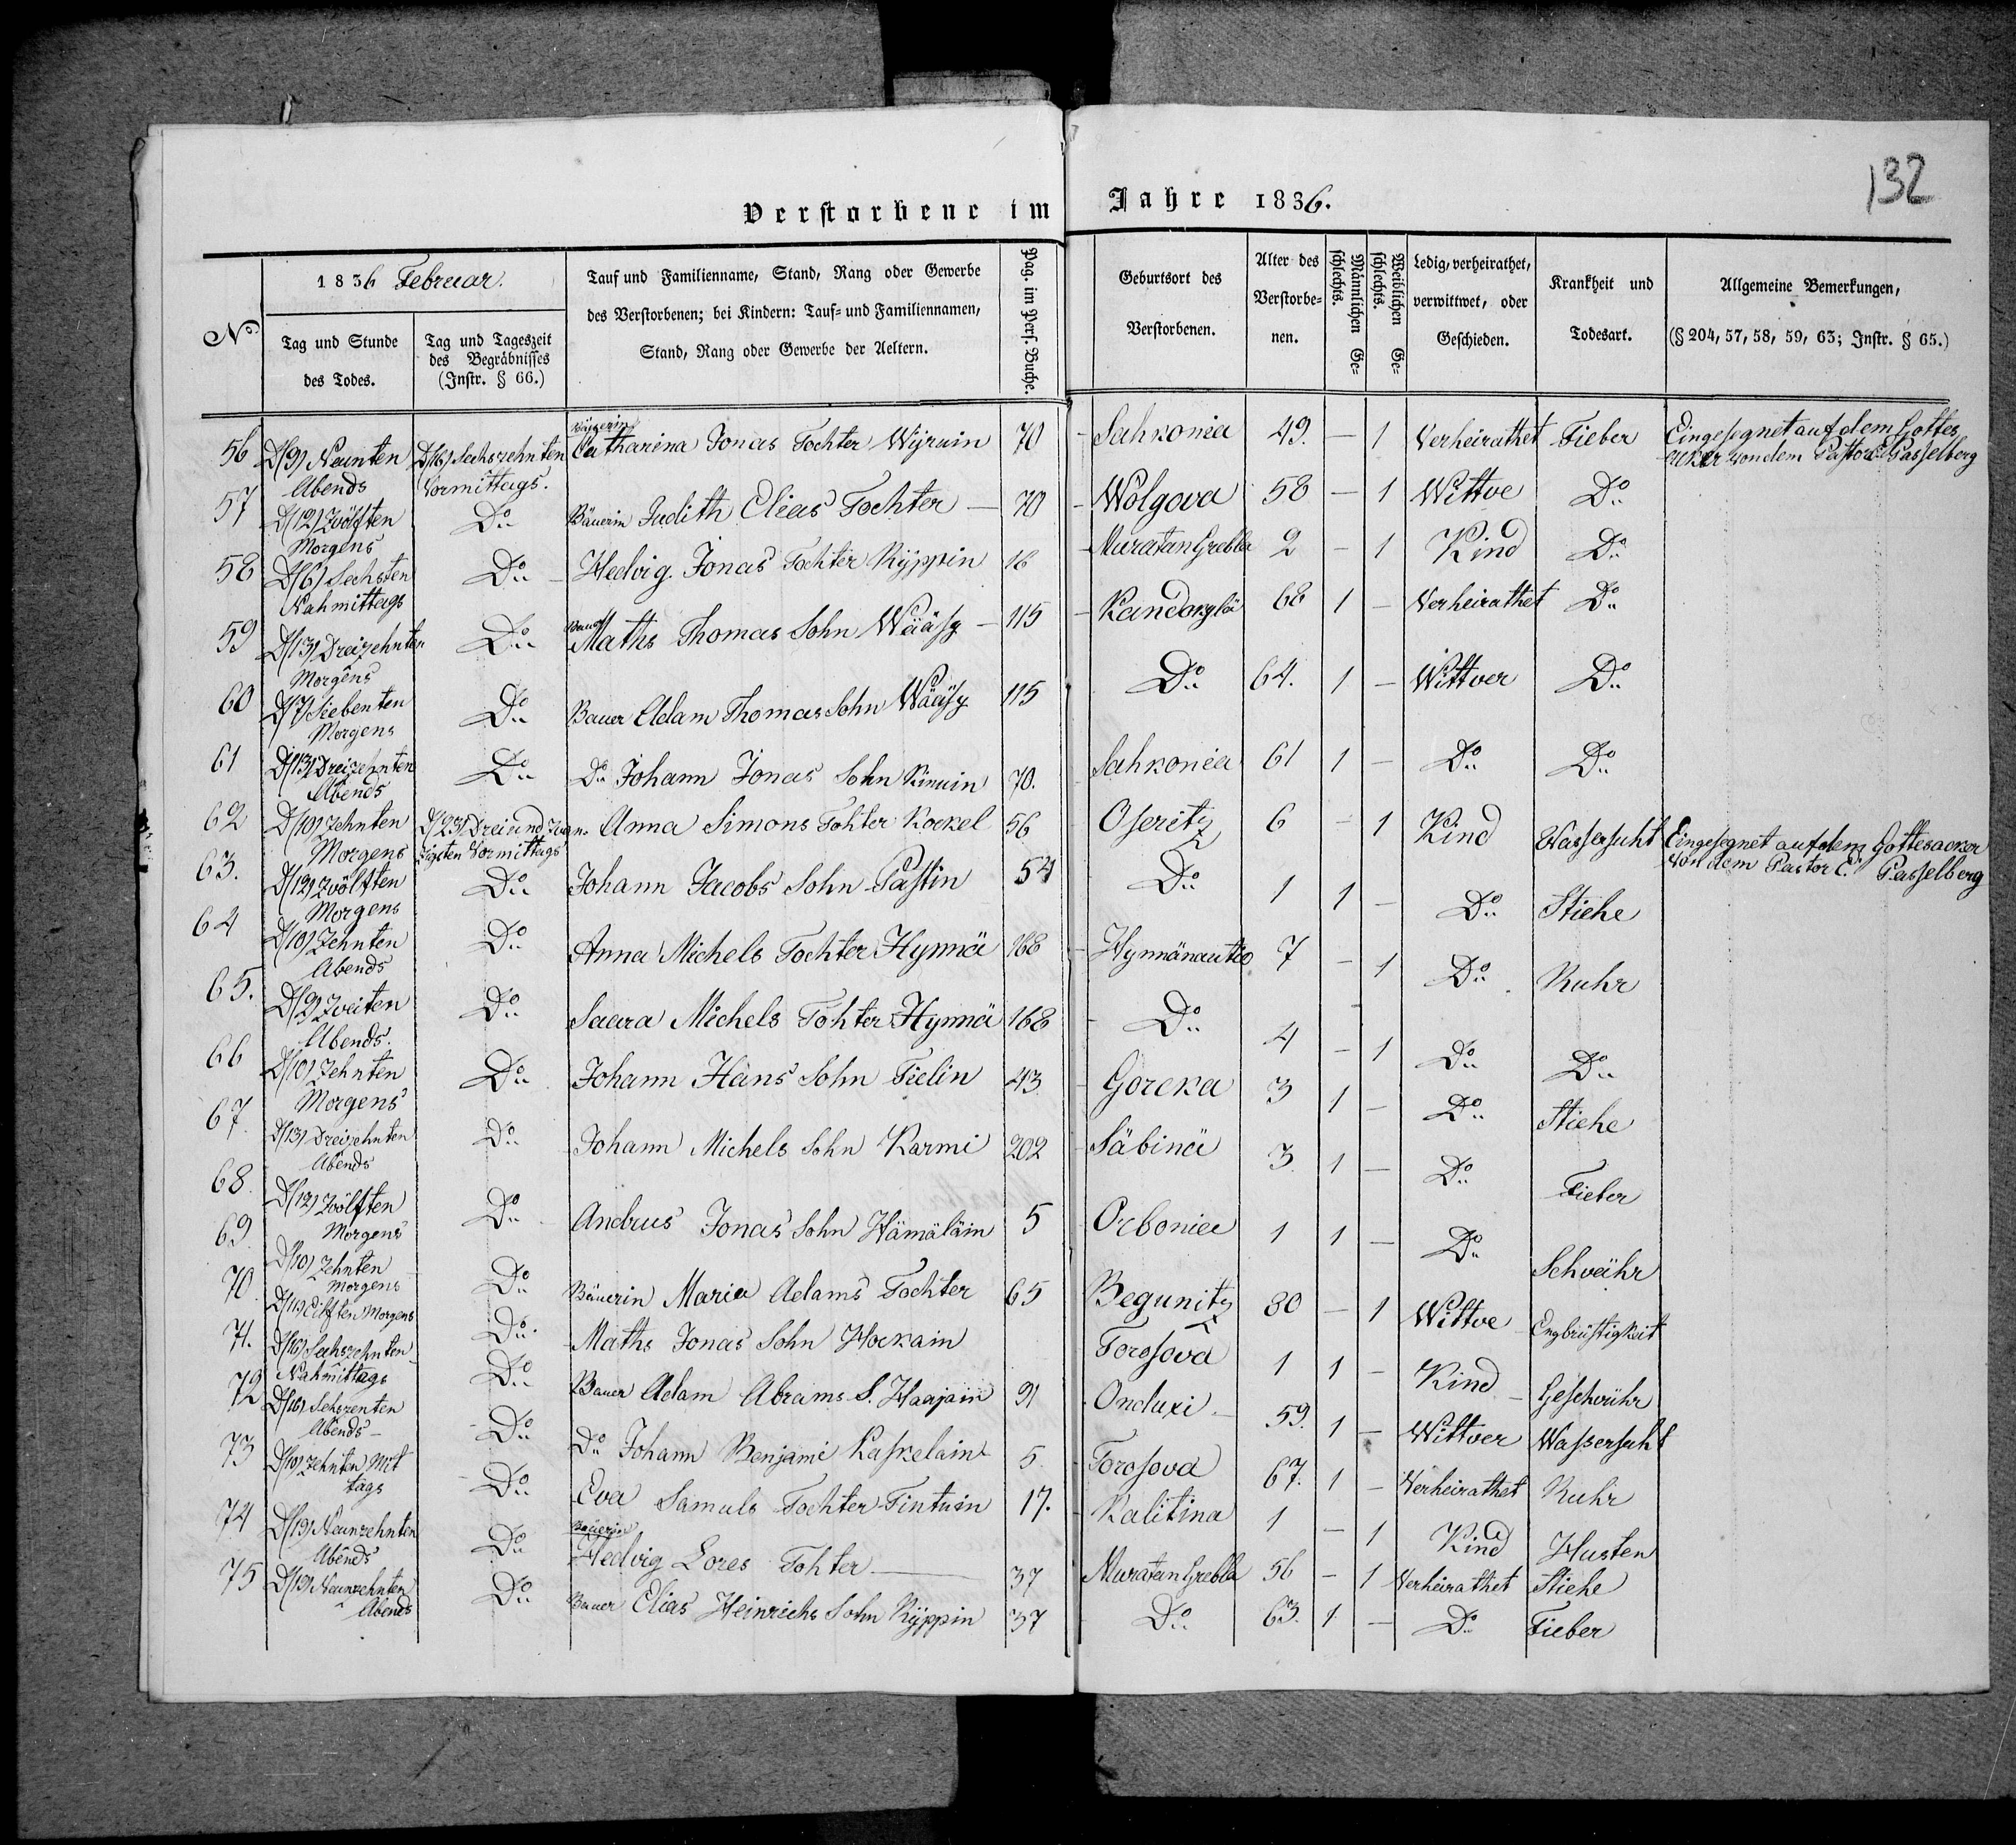 132
Verstorbene im Jahre 1836.
No.
1836 Februar.
Tag und Stunde des Todes.
Tag und Tageszeit des Begräbnisses (Instr. § 66.)
Tauf und Familienname, Stand, Rang oder Gewerbe
des Verstorbenen; bei Kindern: Tauf- und Familiennamen,
Stand, Rang oder Gewerbe der Aeltern.
Pag. im Pers. Buche.
Geburtsort des Verstorbenen.
Alter des Verstorbe-nen.
Männlichen Ge-schlechts.
Weiblichen Ge-schlechts.
Ledig, verheirathet, verwittwet, oder Geschieden.
Krankheit und Todesart.
Allgemeine Bemerkungen,
(§ 204, 57, 58, 59, 63; Instr. § 65.)
56 D/9/ Neunten Abends D/16/ Sechszehnten Vormittags. Catharina Jonas Tochter Wijruin 70 Sahkonia 49. — 1 Verheirathet Fieber Eingesegnet auf dem Gottes acker von dem Pastor C. Passelberg
57 D/12/ Zvölften Morgens Do Bäuerin Judith Elias Tochter — 70 Wolgova 58 — 1 Wittve Do
58 D/6/ Sechsten Nahmittags Do Hedvig Jonas Tochter Rijppin 16 Muratan Grebla 2 — 1 Kind Do
59 D/13/ Dreizehnten Morgens Do Bauer Maths Thomas Sohn Wääsy — 115 68 1 — Verheirathet Do
60 D/7/ Siebenten Morgens Do Bauer Adam Thomas Sohn Wääsy 115 Do 64. 1 — Wittver Do
61 D/13/ Dreizehnten Abends Do Do Johann Jonas Sohn Kinuin 70. Sahkonia 61 1 — Do Do
62 D/10/ Zehnten Morgens D/23/ Drei und Zvan zigsten Vormittags Anna Simons Tohter Kockel 56 Oseritz 6 — 1 Kind Wassersuht Eingesegnet auf dem Gottesacker von dem Pastor C. Passelberg
63. D/12/ Zvölften Morgens Do Johann Jacobs Sohn Pastin 54 Do 1 1 — Do Stiche
64 D/10/ Zehnten Abends Do Anna Michels Tochter Hynnä 168 Hynnänautio 7 — 1 Do Ruhr
65. D/2/ Zveiten Abends. Do Saara Michels Tohter Hynnä 168 Do 4 — 1 Do Do
66 D/10/ Zehnten Morgens Do Johann Hans Sohn Tielin 43 Gorcka 3 1 — Do Stiehe
67. D/13/ Dreizehnten Abends Do Johann Michels Sohn Karmi 202 Säbinä 3. 1 — Do Fieber
68. D/12/ Zvölften Morgens Do Andrus Jonas Sohn Hämäläin 5 Orbonice 1 1 — Do Schvähr
69 D/10/ Zehnten Morgens Do Bäuerin Maria Adams Tochter 65 Begunitz 80 — 1 Wittve Engbrüstigkeit
70. D/11/ Eilften Morgens Do Maths Jonas Sohn Hockain Torosova 1 1 — Kind Geschvühr
71. D/16/ Sechszehnten Nahmittags Do Bauer Adam Abrams S. Haajain 91 Onduxi 59. 1 — Wittver Wassersuht
72 D/16/ Sehszenten Abends — Do Do Johann Benjami Kaskelain 5. Torosova 67. 1 — Verheirathet Ruhr
73 D/10/ Zehnten Mit tags Do Eva Samuls Tochter Tintuin 17. Kalitina 1 — 1 Kind Husten
74 D/19/ Neunzehnten Abends Do Bäuerin Hedvig Lores Tohter — 37 Muratan Grebla 56 — 1 Verheirathet Stiehe
75 D/19/ Neunzehnten Abends Do Bauer Elias Heinrichs Sohn Rijppin 37 Do 63. 1 — Do Fieber